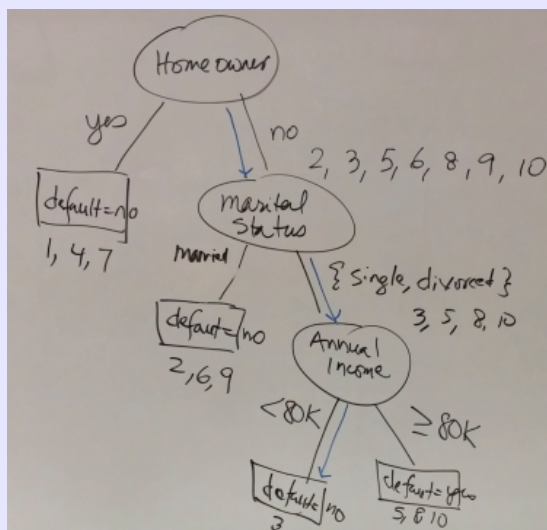 Home owner
yes
no
2, 3, 5, 6, 8, 9, 10
default=no
1, 4, 7
Marital
Status
married
{single, divorced}
3, 5, 8, 10
default=no
2, 6, 9
Annual
Income
<80K
≥80K
default=no
3
default=yes
5, 8, 10